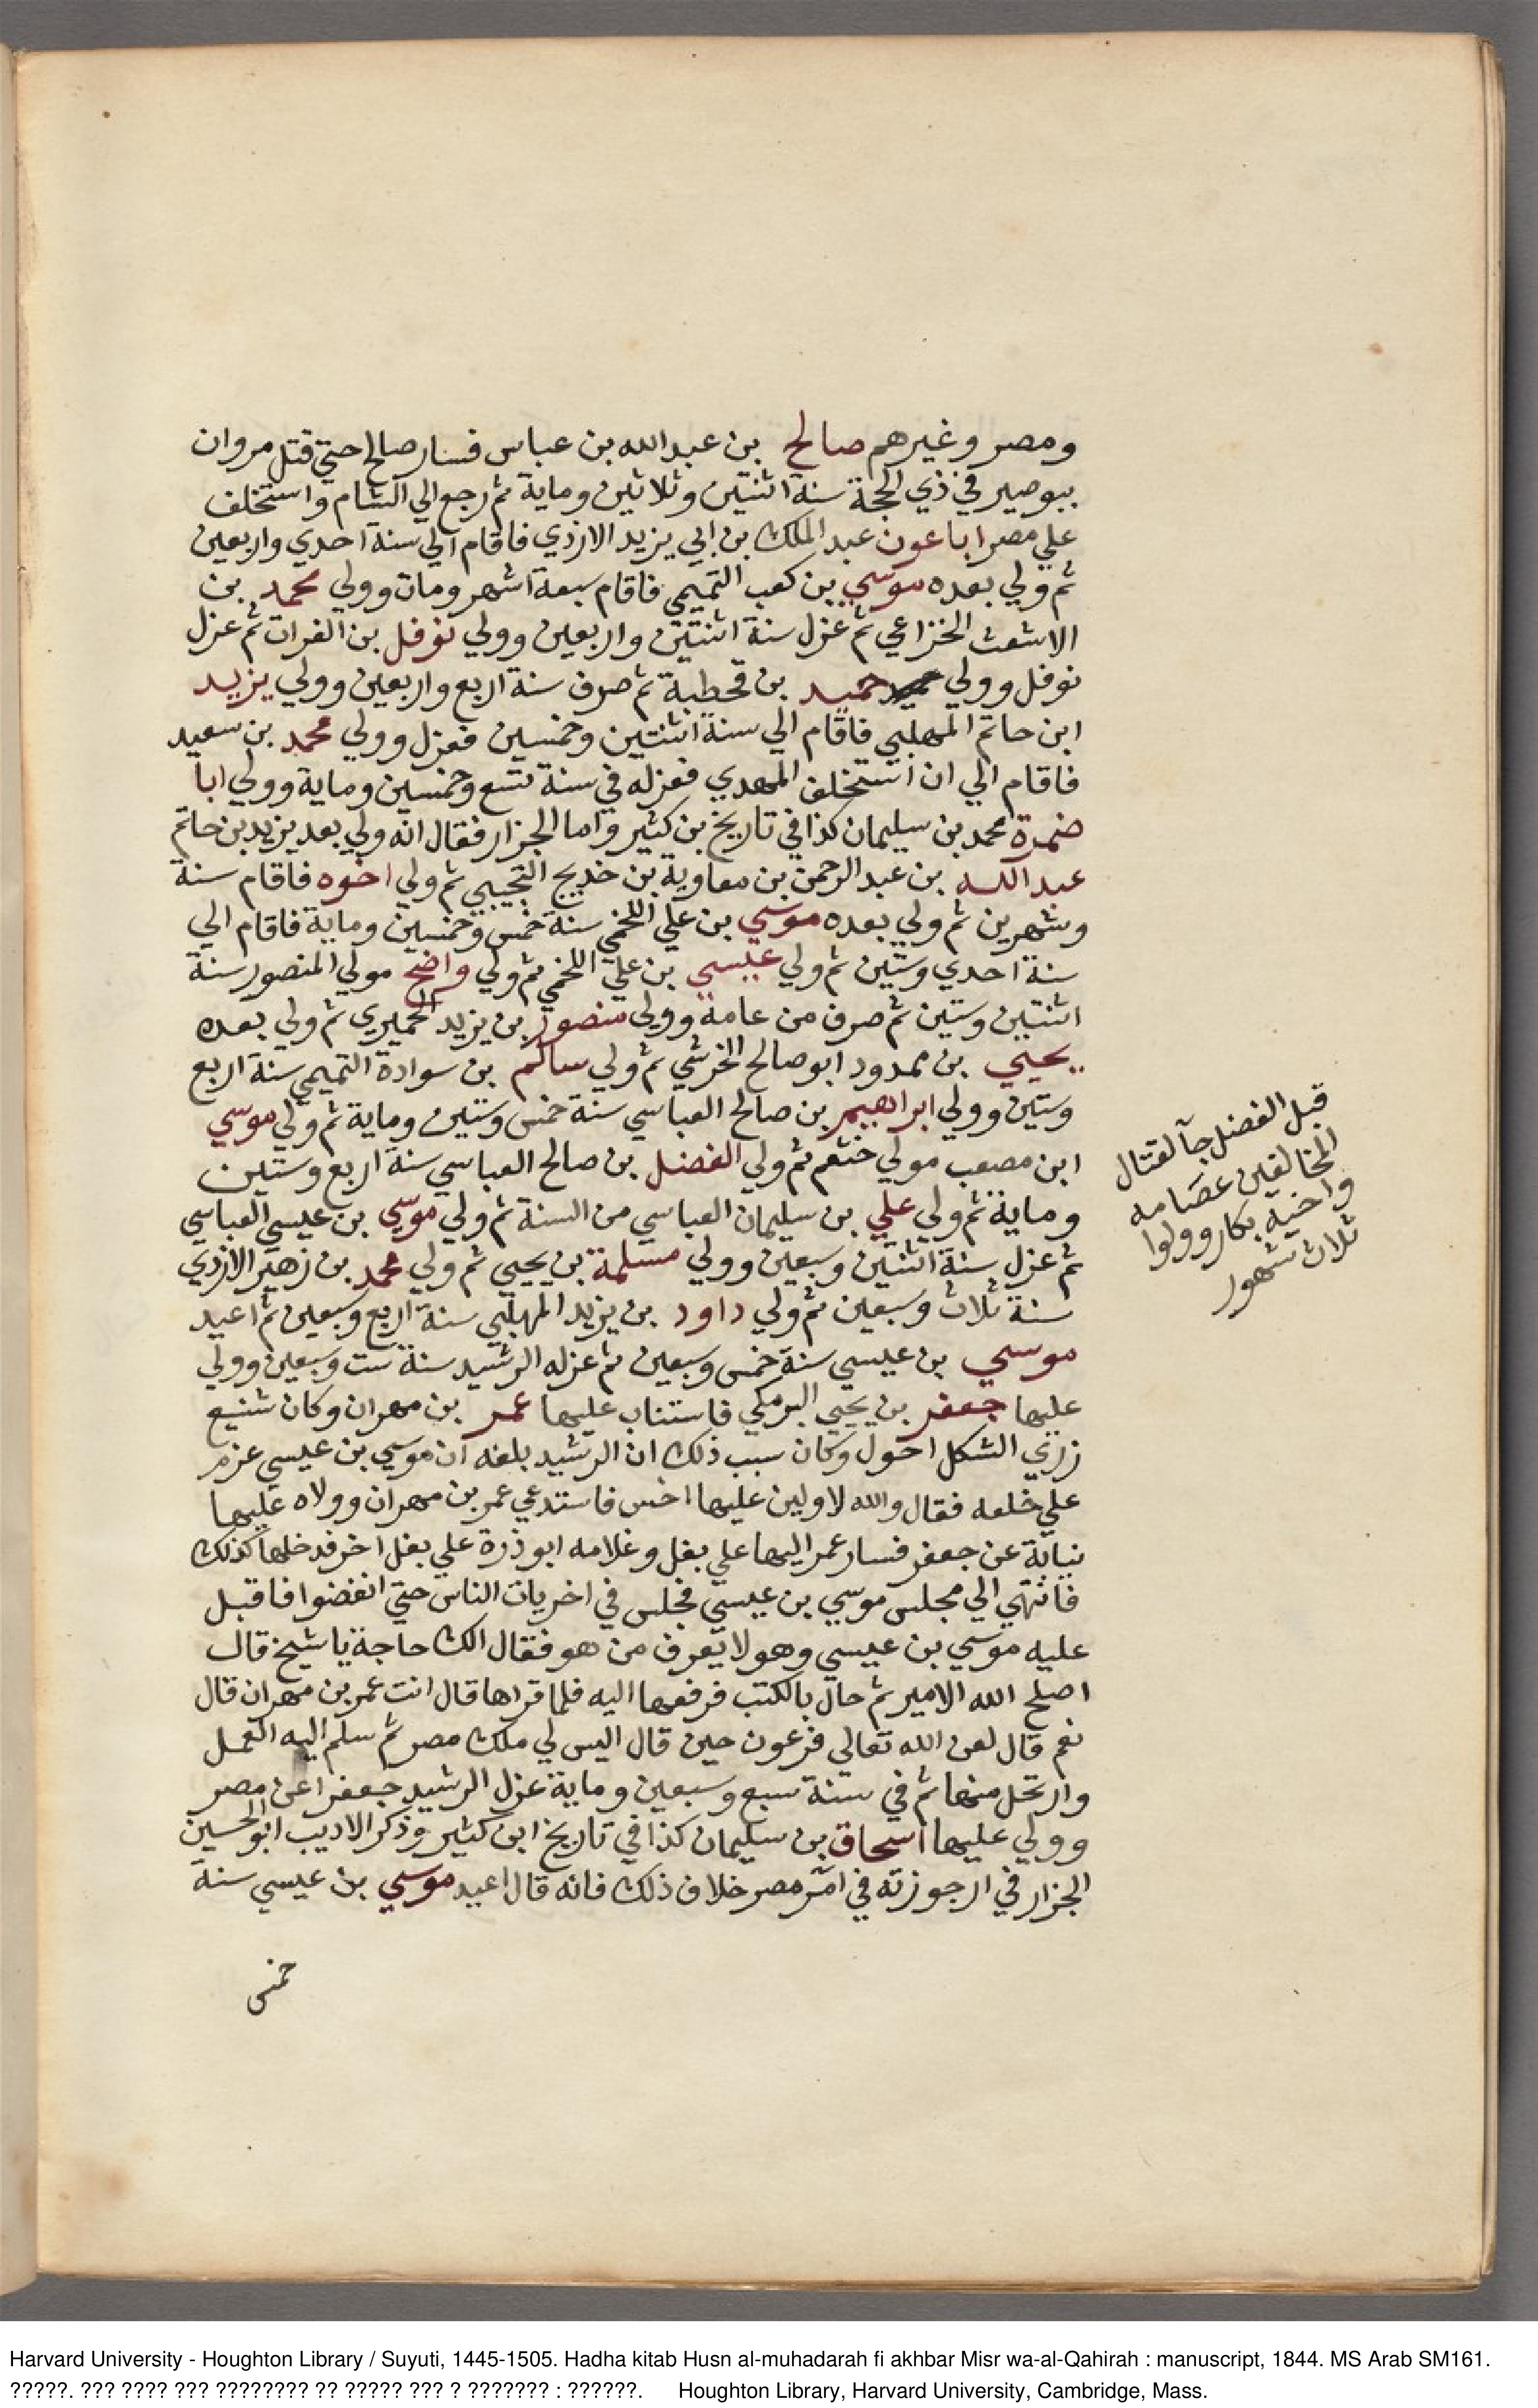 ومصر وغيرهم صالح بن عبد الله بن عباس فسار صالح حتي قتل مروان
ببوصير في ذي الحجة سنة اثنتين وثلاثين وماية ثم رجع الي الشام واستخلف
علي مصر ابا عون عبد الملك بن ابي يزيد الازدي فاقام الي سنة احدي واربعين
ثم ولي بعده موسي بن كعب التميمي فاقام سبعة اشهر ومات وولي محمد بن
الاشعث الخزاعي ثم عزل سنة اثنتين واربعين وولي نوفل بن الفرات ثم عزل
نوفل وولي حميد بن قحطبة ثم صرف سنة اربع واربعين وولي يزيد
ابن حاتم المهلبي فاقام الي سنة اثنتين وخمسين فعزل وولي محمد بن سعيد
فاقام الي ان استخلف المهدي فعزله في سنة تسع وخمسين وماية وولي ابا
ضمرة محمد بن سليمان كذا في تاريخ بن كثير واما الجزار فقال انه ولي بعد يزيد بن حاتم
عبد الله بن عبد الرحمن بن معاوية بن خديج التجيبي ثم ولي اخوه فاقام سنة
وشهرين ثم ولي بعده موسي بن علي اللخمي سنة خمس وخمسين وماية فاقام الي
سنة احدي وستين ثم ولي عيسي بن علي اللخمي ثم ولي واضح مولي المنصور سنة
اثنتين وستين ثم صرف من عامه وولي منصور بن يزيد الحميري ثم ولي بعده
يحيي بن ممدود ابو صالح الخرشي ثم ولي سالم بن سوادة التميمي سنة اربع
وستين وولي ابراهيم بن صالح العباسي سنة خمس وستين وماية ثم ولي موسي
ابن مصعب مولي خثعم ثم ولي الفضل بن صالح العباسي سنة اربع وستين
وماية ثم ولي علي بن سليمان العباسي من السنة ثم ولي موسي بن عيسي العباسي
ثم عزل سنة اثنتين وسبعين وولي مسلمة بن يحيي ثم ولي محمد بن زهير الازدي
سنة ثلاث وسبعين ثم ولي داود بن يزيد المهلبي سنة اربع وسبعين ثم اعيد
موسي بن عيسي سنة خمس وسبعين ثم عزله الرشيد سنة ست وسبعين وولي
عليها جعفر بن يحيي البرمكي فاستناب عليها عمر بن مهران وكان شنيع
زري الشكل احول وكان سبب ذلك ان الرشيد بلغه ان موسي بن عيسي عزم
علي خلعه فقال والله لاولين عليها اخس فاستدعي عمر بن مهران وولاه عليها
نيابة عن جعفر فسار عمر اليها علي بغل وغلامه ابو ذرة علي بغل اخر فدخلها كذلك
فانتهي الي مجلس موسي بن عيسي فجلس في اخريات الناس حتي انفضوا فاقبل
عليه موسي بن عيسي وهو لا يعرف من هو فقال الك حاجة يا شيخ قال
اصلح الله الامير ثم حال بالكتب فرفعها اليه فلما قراها قال انت عمر بن مهران قال
نعم قال لعن الله تعالي فرعون حين قال اليس لي ملك مصر ثم سلم اليه العمل
وارتحل منها ثم في سنة سبع وسبعين وماية عزل الرشيد جعفرا عن مصر
وولي عليها اسحاق بن سليمان كذا في تاريخ ابن كثير وذكر الاديب ابو الحسين
الجزار في ارجوزته في امر مصر خلاف ذلك فانه قال اعيد موسي بن عيسي سنة
خمس
قبل الفضل جآ لقتال
المخالفين عصامه
واخيه بكار وولوا
ثلاث شهور
Harvard University - Houghton Library / Suyuti, 1445-1505. Hadha kitab Husn al-muhadarah fi akhbar Misr wa-al-Qahirah : manuscript, 1844. MS Arab SM161.
?????. ??? ???? ??? ???????? ?? ????? ??? ? ??????? : ??????. Houghton Library, Harvard University, Cambridge, Mass.